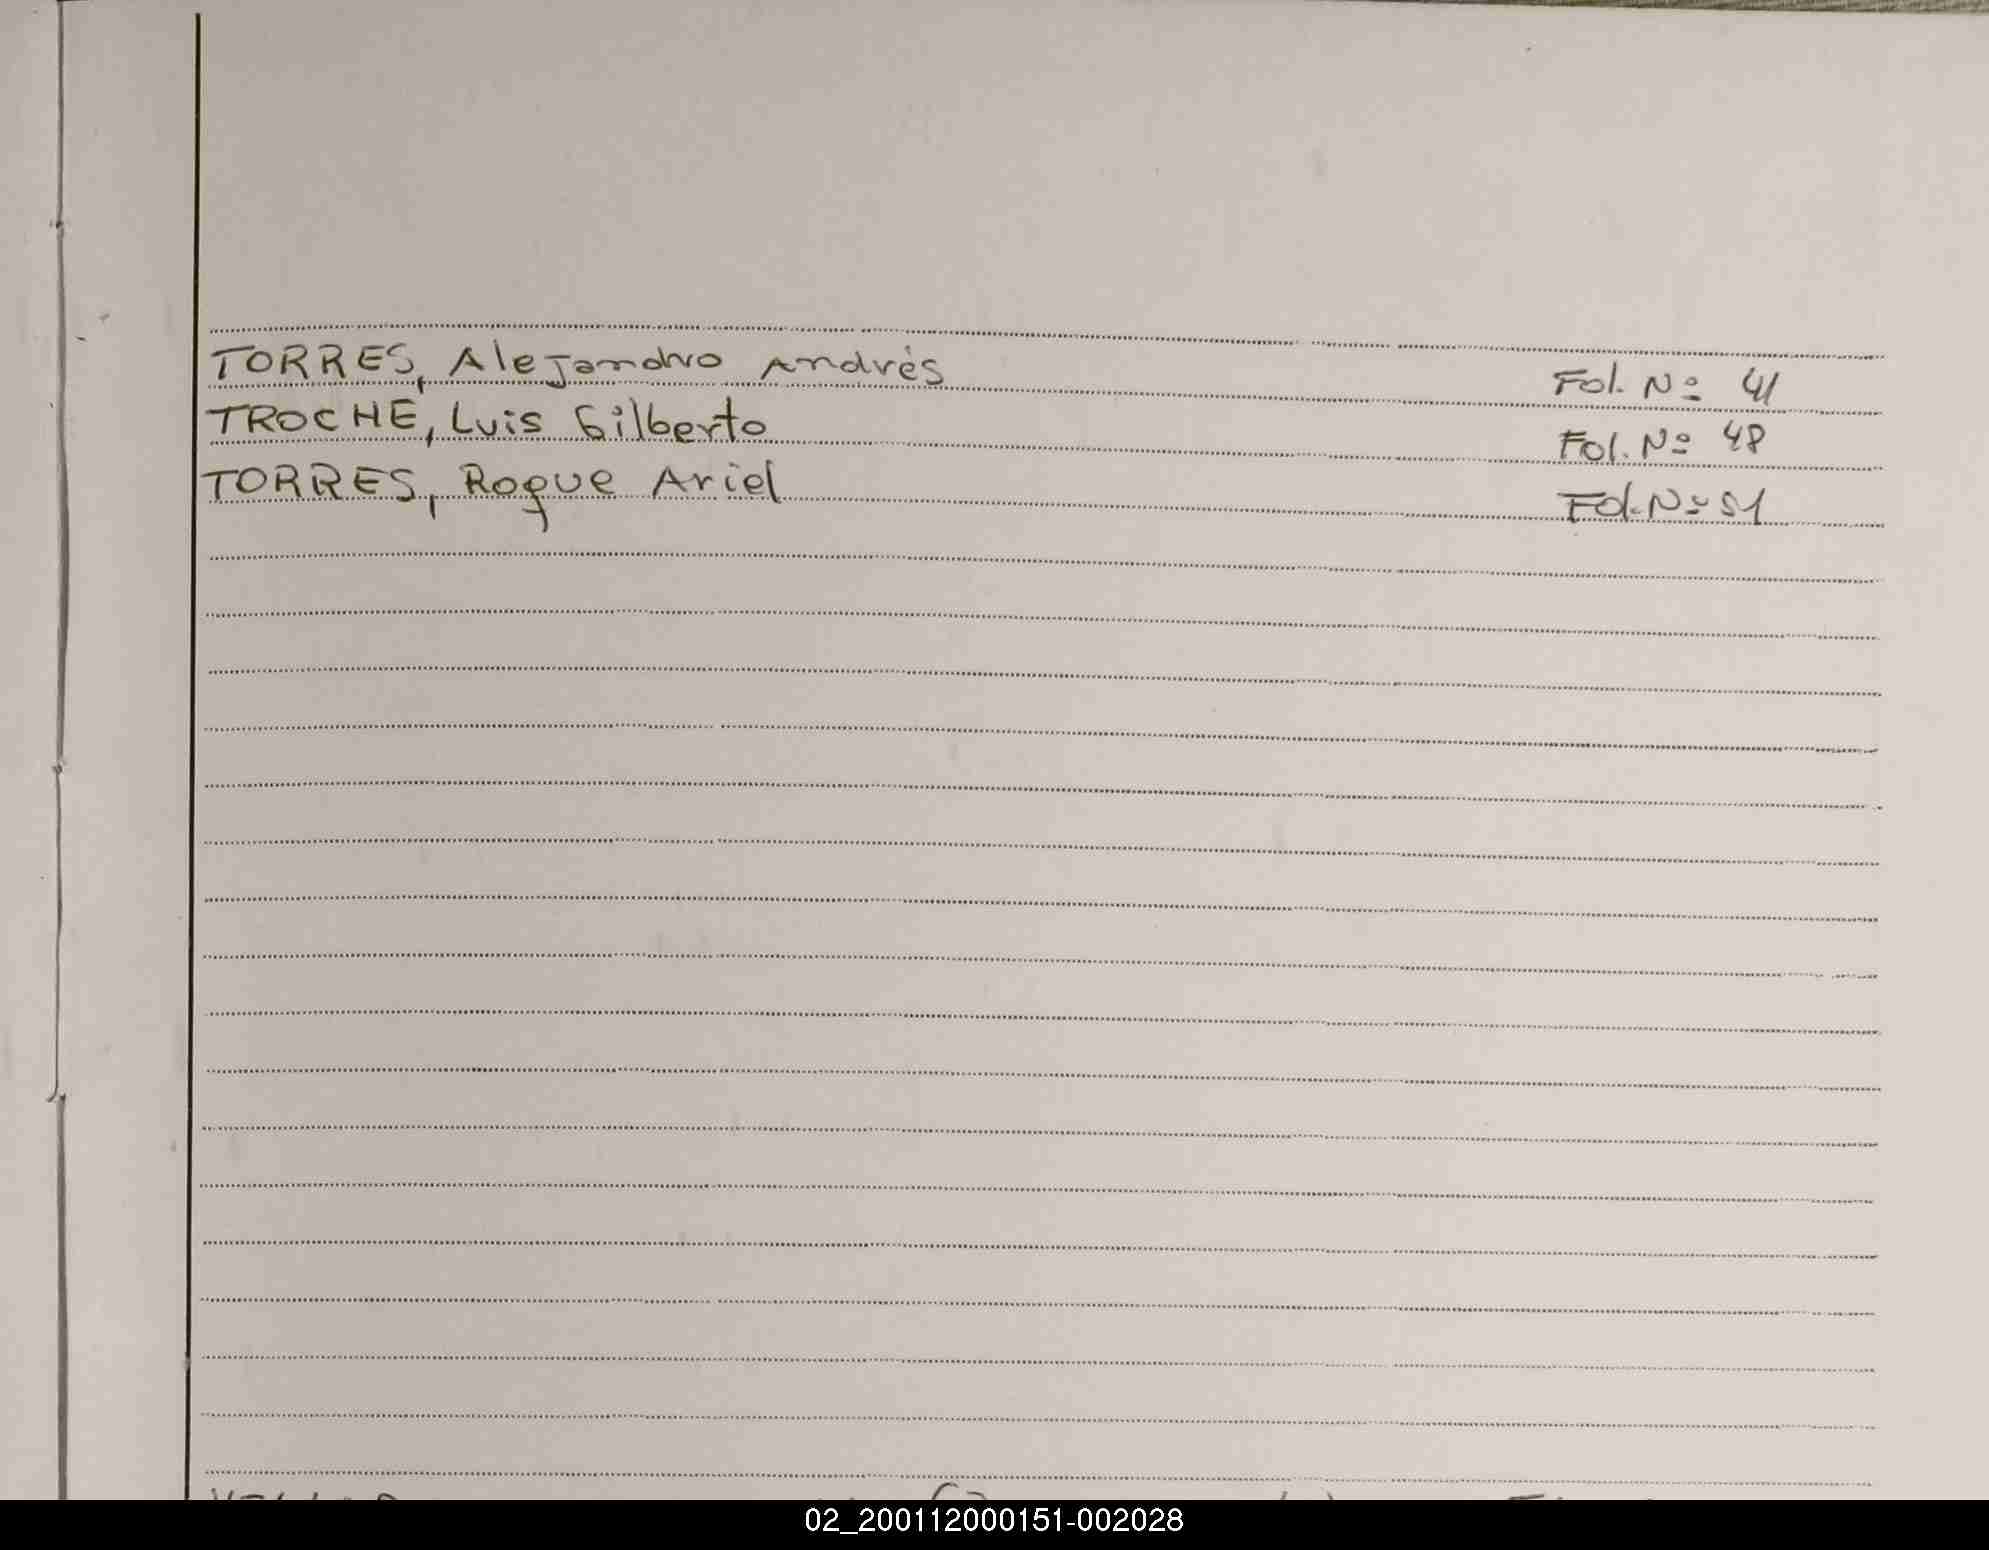 TORRES, Alejandro Andrés Fol. Nº 41
TROCHE, Luis Gilberto Fol. Nº 48
TORRES, Roque Ariel Fol. Nº 51
02_200112000151-002028